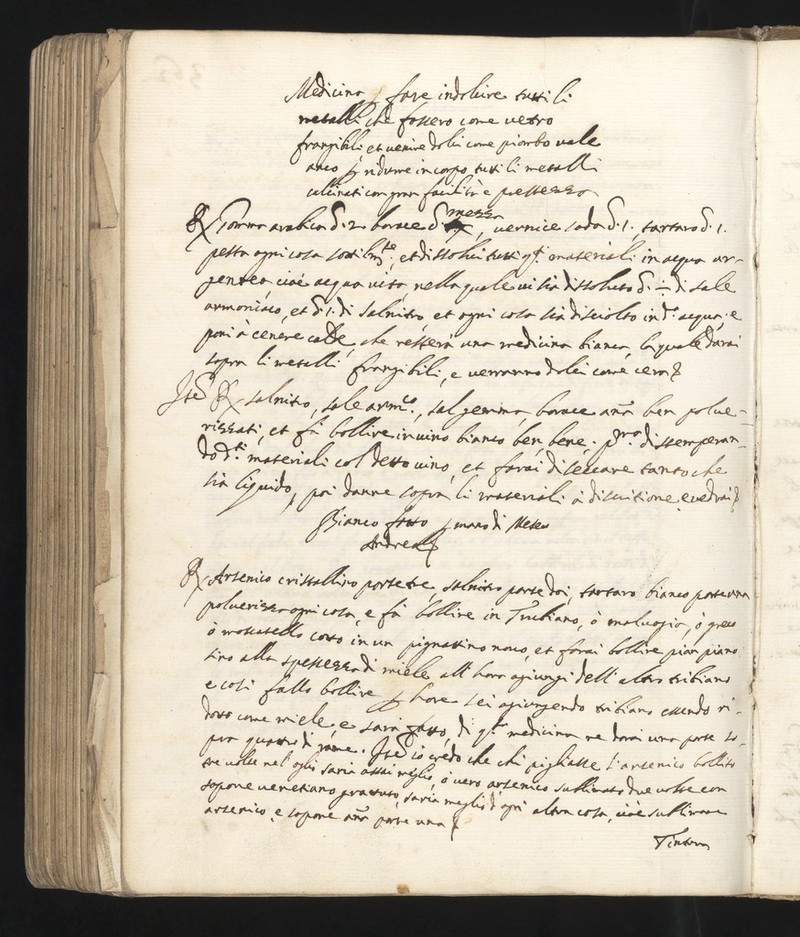 Medicina p fare indolcire tutti li
metalli che fossero come vetro
frangibili et venire dolci come piombo vale
anco p ridurre in corpo tutti li metalli
calcinati con gran facilità e prestezza
℞ Gomma arabica ʒ. 2. borace ʒ mezza, vernice soda ʒ. 1. tartaro ʒ. 1.
pesta ogni cosa sottilmte, et dissolvi tutti qti materiali in acqua ar-
gentea, cioè acqua vita, nella quale vi sia dissoluto di sale
armoniaco, et ʒ. 1. di salnitro et ogni cosa sia disciolto in da acqua, e
poni à cenere calde, che resterà una medicina bianca, la quale darai
sopra li metalli frangibili, e verranno dolci come cera
Ite ℞ salnitro, sale armco, sal gemma, borace anã ben polve-
rizzati, et fà bollire in vino bianco ben, bene, pma distemperan-
do dti materiali col detto vino, et farai diseccare tanto che
sia liquido, poi danne sopra li materiali à discritione, e vedrai
Bianco fatto p mano di Meser
Andrea
℞ Arsenico cristallino parte tre, salnitro parte doi, tartaro bianco parte una
polverizza ogni cosa, e fà bollire in Trebiano, ò malvagia, ò greco
ò moscatello cotto in un pignattino novo, et farai bollire pian piano
sino alla spessezza di miele all'hora agiungi dell'altro tribiano
e così fallo bollire p hore sei agiungendo tribiano essendo ri-
dotto come miele, e sarà fatto, di qta medicina ne darai una parte so-
pra quattro di rame. Ite io credo che chi pigliasse l'arsenico bollito
tre volte nel oglio saria assai meglio, ò vero arsenico sullimato due volte con
sapone venetiano grattato, saria meglio d'ogni altra cosa, cioè sullimare
arsenico, e sapone anã parte una
Tintura